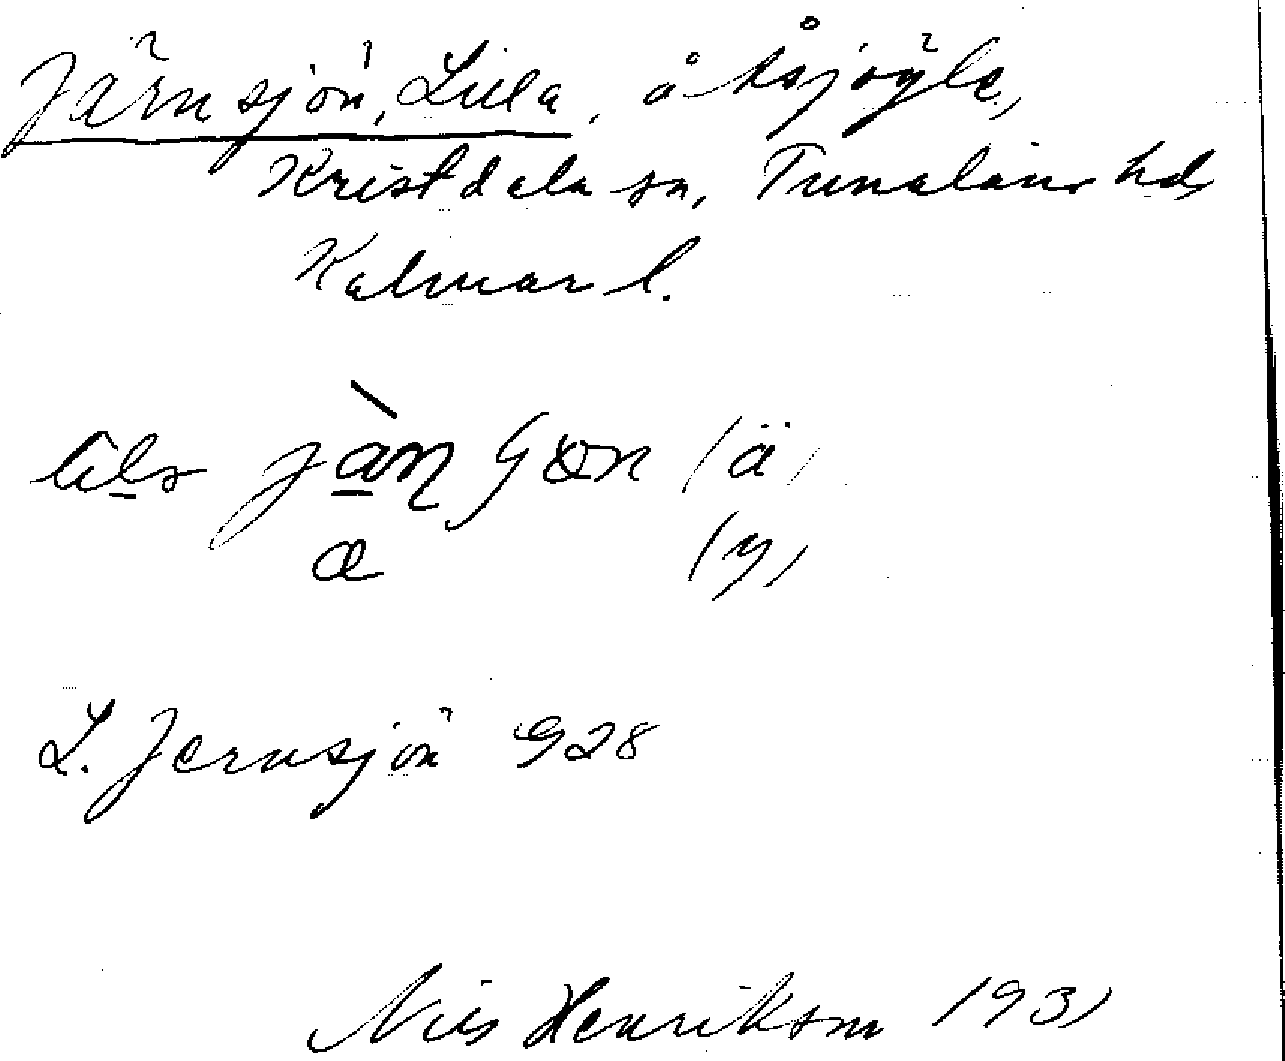 Järnsjön, Lilla, å
Kristdala sn, Tunaläns hd,
Kalmar l.
(ä)
(y)
L. Jernsjön 928
Nils Henrikson 1931